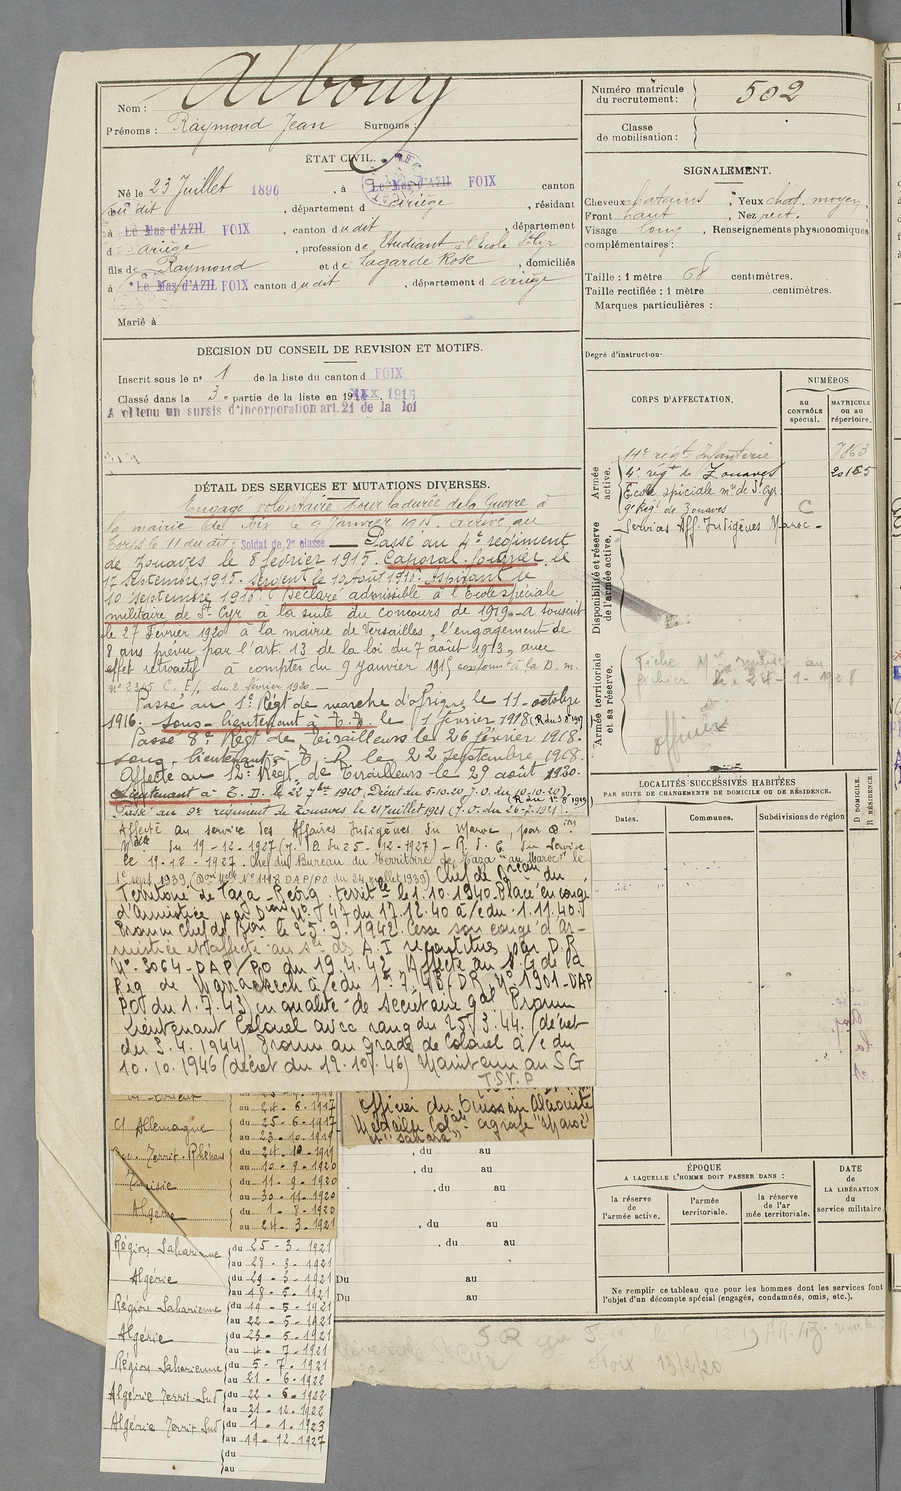 Nom : Alboury
Prénoms : Raymond Jean Surnoms :
ÉTAT CIVIL.
Né le 23 Juillet 1896, à Le Mas d'AZIL FOIX canton
dudit, département d Ariège, résidant
à Le Mas d'AZIL FOIX, canton dudit, département
d Ariège, profession de Etudiant à l'Ecole St Cyr
fils de Raymond et de Lagarde Rose, domiciliés
à Le Mas d'AZIL FOIX canton dudit, département d Ariège
Marié à
DÉCISION DU CONSEIL DE REVISION ET MOTIFS.
Inscrit sous le n° 1 de la liste du canton d FOIX
Classé dans la 3e partie de la liste en 1915
A obtenu un sursis d'incorporation art. 21 de la loi
DÉTAIL DES SERVICES ET MUTATIONS DIVERSES.
Engagé volontaire pour la durée de la Guerre à
la mairie de Foix le 9 Janvier 1915. Arrivé au
Corps le 11 du dit. Soldat de 2e classe Passé au 4e régiment
de Zouaves le 8 février 1915. Caporal fourrier le
17 Septembre 1915. Sergent le 10 Août 1916. Aspirant le
10 septembre 1916. Déclaré admissible à l'Ecole spéciale
militaire de St Cyr à la suite du concours de 1919. A souscrit
le 27 Février 1920 à la mairie de Versailles, l'engagement de
8 ans prévu par l'art. 13 de la loi du 7 août 1913, avec
effet rétroactif à compter du 9 Janvier 1915 conformt à la D. m.
n° 2345 C. E/, du 2 février 1920.
Passé au 1er Régt de marche d'Afrique le 11 octobre
1916. Sous-lieutenant à T.T. le 1 février 1918
Passé 8e Régt de Tirailleurs le 26 février 1918.
Sous-lieutenant à T.R. le 22 Septembre 1918.
Affecté au 12e Régt de Tirailleurs le 29 août 1920.
Lieutenant à T. D. le 22 7bre 1920 (Décret du 5.10.20, J.O. du 10.10.20)
Passé au 9e régiment de Zouaves le 21 Juillet 1921 (J.O. du 26-7-1921).
Affecté au service des Affaires Indigènes du Maroc, par Don
Melle du 19-12-1927 (J.O. du 25-12-1927) - R. d. C. du Service
le 19-12-1927. Chef du Bureau du Territoire de Taza "au Maroc" le
1er sept. 1939 (Don Melle N° 1118 DAP/PO du 24 juillet 1939) Chef de Bureau du
Territoire de Taza - Réorg. territle le 1.10.1940. Placé en congé
d'Armistice par Don N° 747 du 17.12.40 à/c du 1.11.40.
Promu Chef de Bon le 25.9.1942. Cesse son congé d'Ar-
mistice et affecté au sce des A.I reconstitués par D.R
N° 3064-DAP/PO du 19.4.43. Affecté au S.G de la
Rég de Marrakech à/c du 1er.7.43 (DR. N° 1901-DAP
PO du 1.7.43) en qualité de secrétaire gal. Promu
Lieutenant Colonel avec rang du 25.3.44. (décret
du 3.4.1944) Promu au Grade de Colonel à/c du
10.10.1946 (décret du 12.10.46) Maintenu au SG
T.S.V.P
au 24-6-1917
Allemagne du 25-6-1917
au 23-10-1919
Territ. Rhénans du 24-10-1919
au 10-9-1920
Tunisie du 11-9-1920
au 30-11-1920
Algérie du 1-8-1920
au 24-3-1921
Région Saharienne du 25-3-1921
au 28-3-1921
Algérie du 29-3-1921
au 18-5-1921
Région Saharienne du 19-5-1921
au 22-5-1921
Algérie du 23-5-1921
au 4-7-1921
Région Saharienne du 5-7-1921
au 21-6-1922
Algérie Territ. Sud du 22-6-1922
au 31-12-1922
Algérie Territ. Sud du 1-1-1923
au 19-12-1927
du
au
Officier du Ouissam Alaouite
Médaille Colale agrafe "Maroc"
et "Sahara"
, du au
, du au
, du au
, du au
, du au
Du au
Du au
Numéro matricule du recrutement : 502
Classe de mobilisation :
SIGNALEMENT.
Cheveux chatains, Yeux chat. moyen
Front haut, Nez rect.
Visage long, Renseignements physionomiques
complémentaires :
Taille : 1 mètre 68 centimètres.
Taille rectifiée : 1 mètre centimètres.
Marques particulières :
Degré d'instruction·
CORPS D'AFFECTATION.
NUMÉROS
au CONTRÔLE spécial.
MATRICULE ou au répertoire.
Armée active.
14e régt Infanterie 7863
4e régt de Zouaves 20185
Ecole spéciale mre de St Cyr
9e Régt de Zouaves C
Services Aff. Indigènes Maroc
Disponibilité et réserve de l'armée active.
Armée territoriale et sa réserve.
officier
LOCALITÉS SUCCESSIVES HABITÉES
PAR SUITE DE CHANGEMENTS DE DOMICILE OU DE RÉSIDENCE.
D DOMICILE. R RÉSIDENCE
Dates. Communes. Subdivisions de région
ÉPOQUE
A LAQUELLE L'HOMME DOIT PASSER DANS :
la réserve de l'armée active.
l'armée territoriale.
la réserve de l'ar mée territoriale.
DATE de LA LIBÉRATION du service militaire.
Ne remplir ce tableau que pour les hommes dont les services font
l'objet d'un décompte spécial (engagés, condamnés, omis, etc.).
Foix 13/2/20